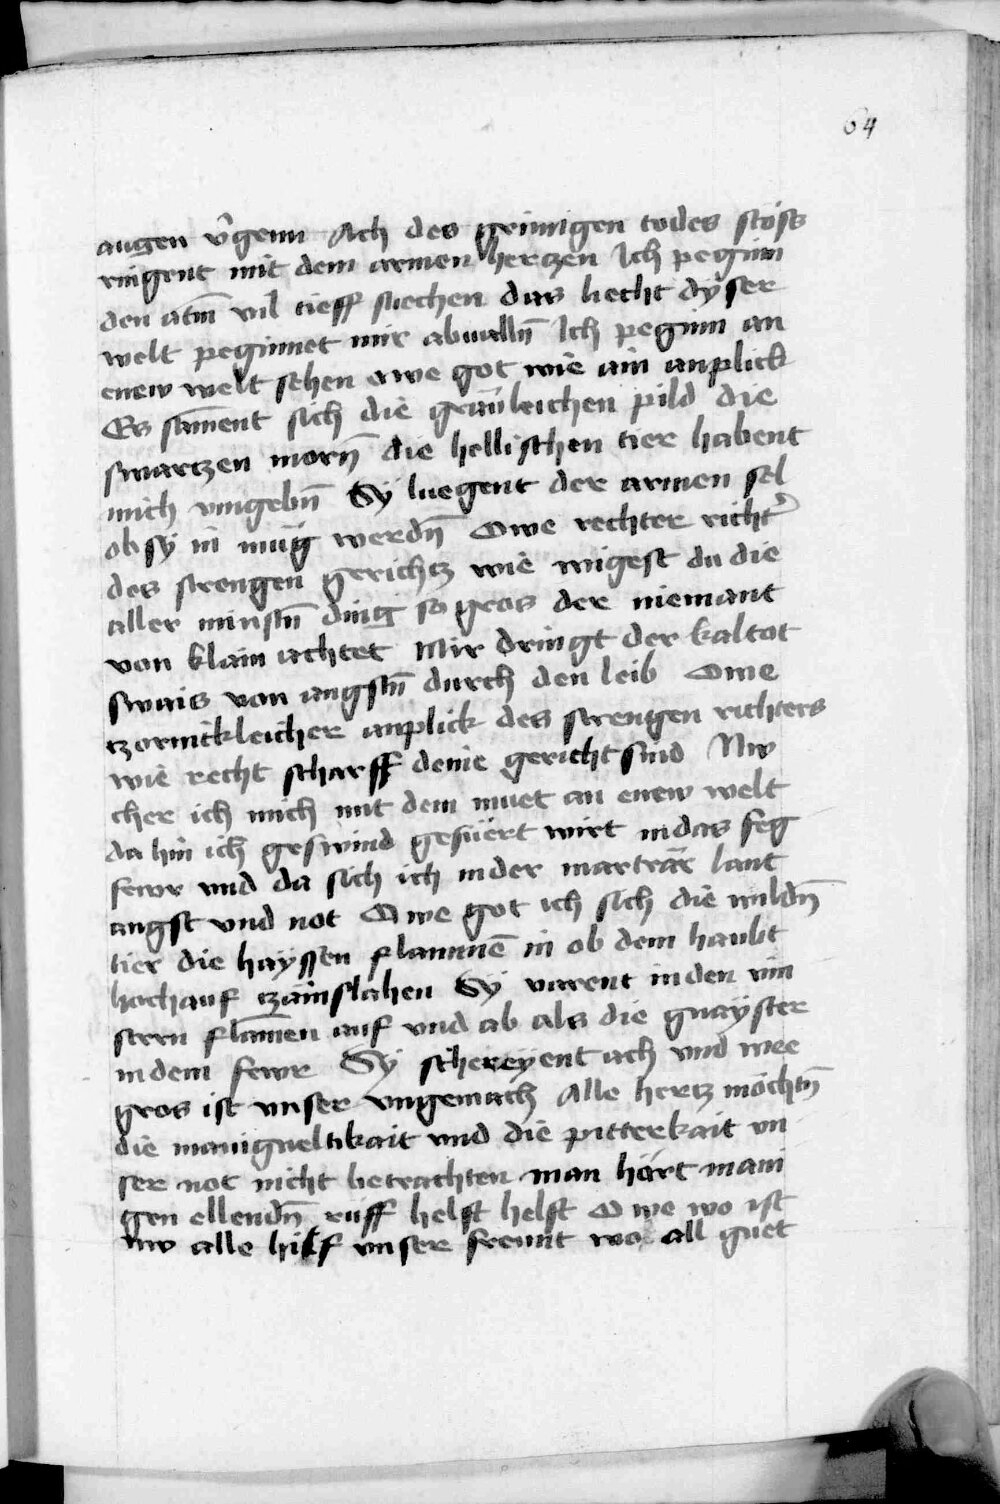 64
augen v̂genn Ach des grimigen todes stöss
ringent mit dem armen hertzen Ich peginn
den atm̄ vil tieff suechen das liecht dyser
welt peginnet mir abuallñ Ich peginn an
enew welt sehen owe got wie ain anplick
Es sam̄ent sich die gräuleichen pild die
swartzen morñ die hellischen tier habent
mich vmgebñ Sy luegent der armen sel
ob sy in müg werdñ Owe rechter richt̓
des strengen gerichtz wie wigest du die
aller minstñ ding so gros der niemant
von klain achtet Mir dringt der kaltot
swais von angstñ durch den leib Owe
tzornikleicher anplick des strengen richters
wie recht scharff deine gericht sind Nw
cher ich mich mit dem muet an enew welt
da hin ich geswind gefüert wirt in das feg
fewr vnd da sich ich in der marträr lant
angst vnd not Owe got ich sich die wildñ
tier die hayssen flammē in ob dem haubt
hoch auf tzäm slahen Sy varent in den vin
stern flam̄en auf vnd ab als die gnayster
in dem fewr Sy schereyent ach vnd wee
gros ist vnser vngemach Alle hertz möchtñ
die manigueltikait vnd die pitterkait vn
ser not nicht betrachten man hört mani
gen ellendñ rüff helft helft Owe wo ist
nw alle hilf vnser frewnt wo all guet